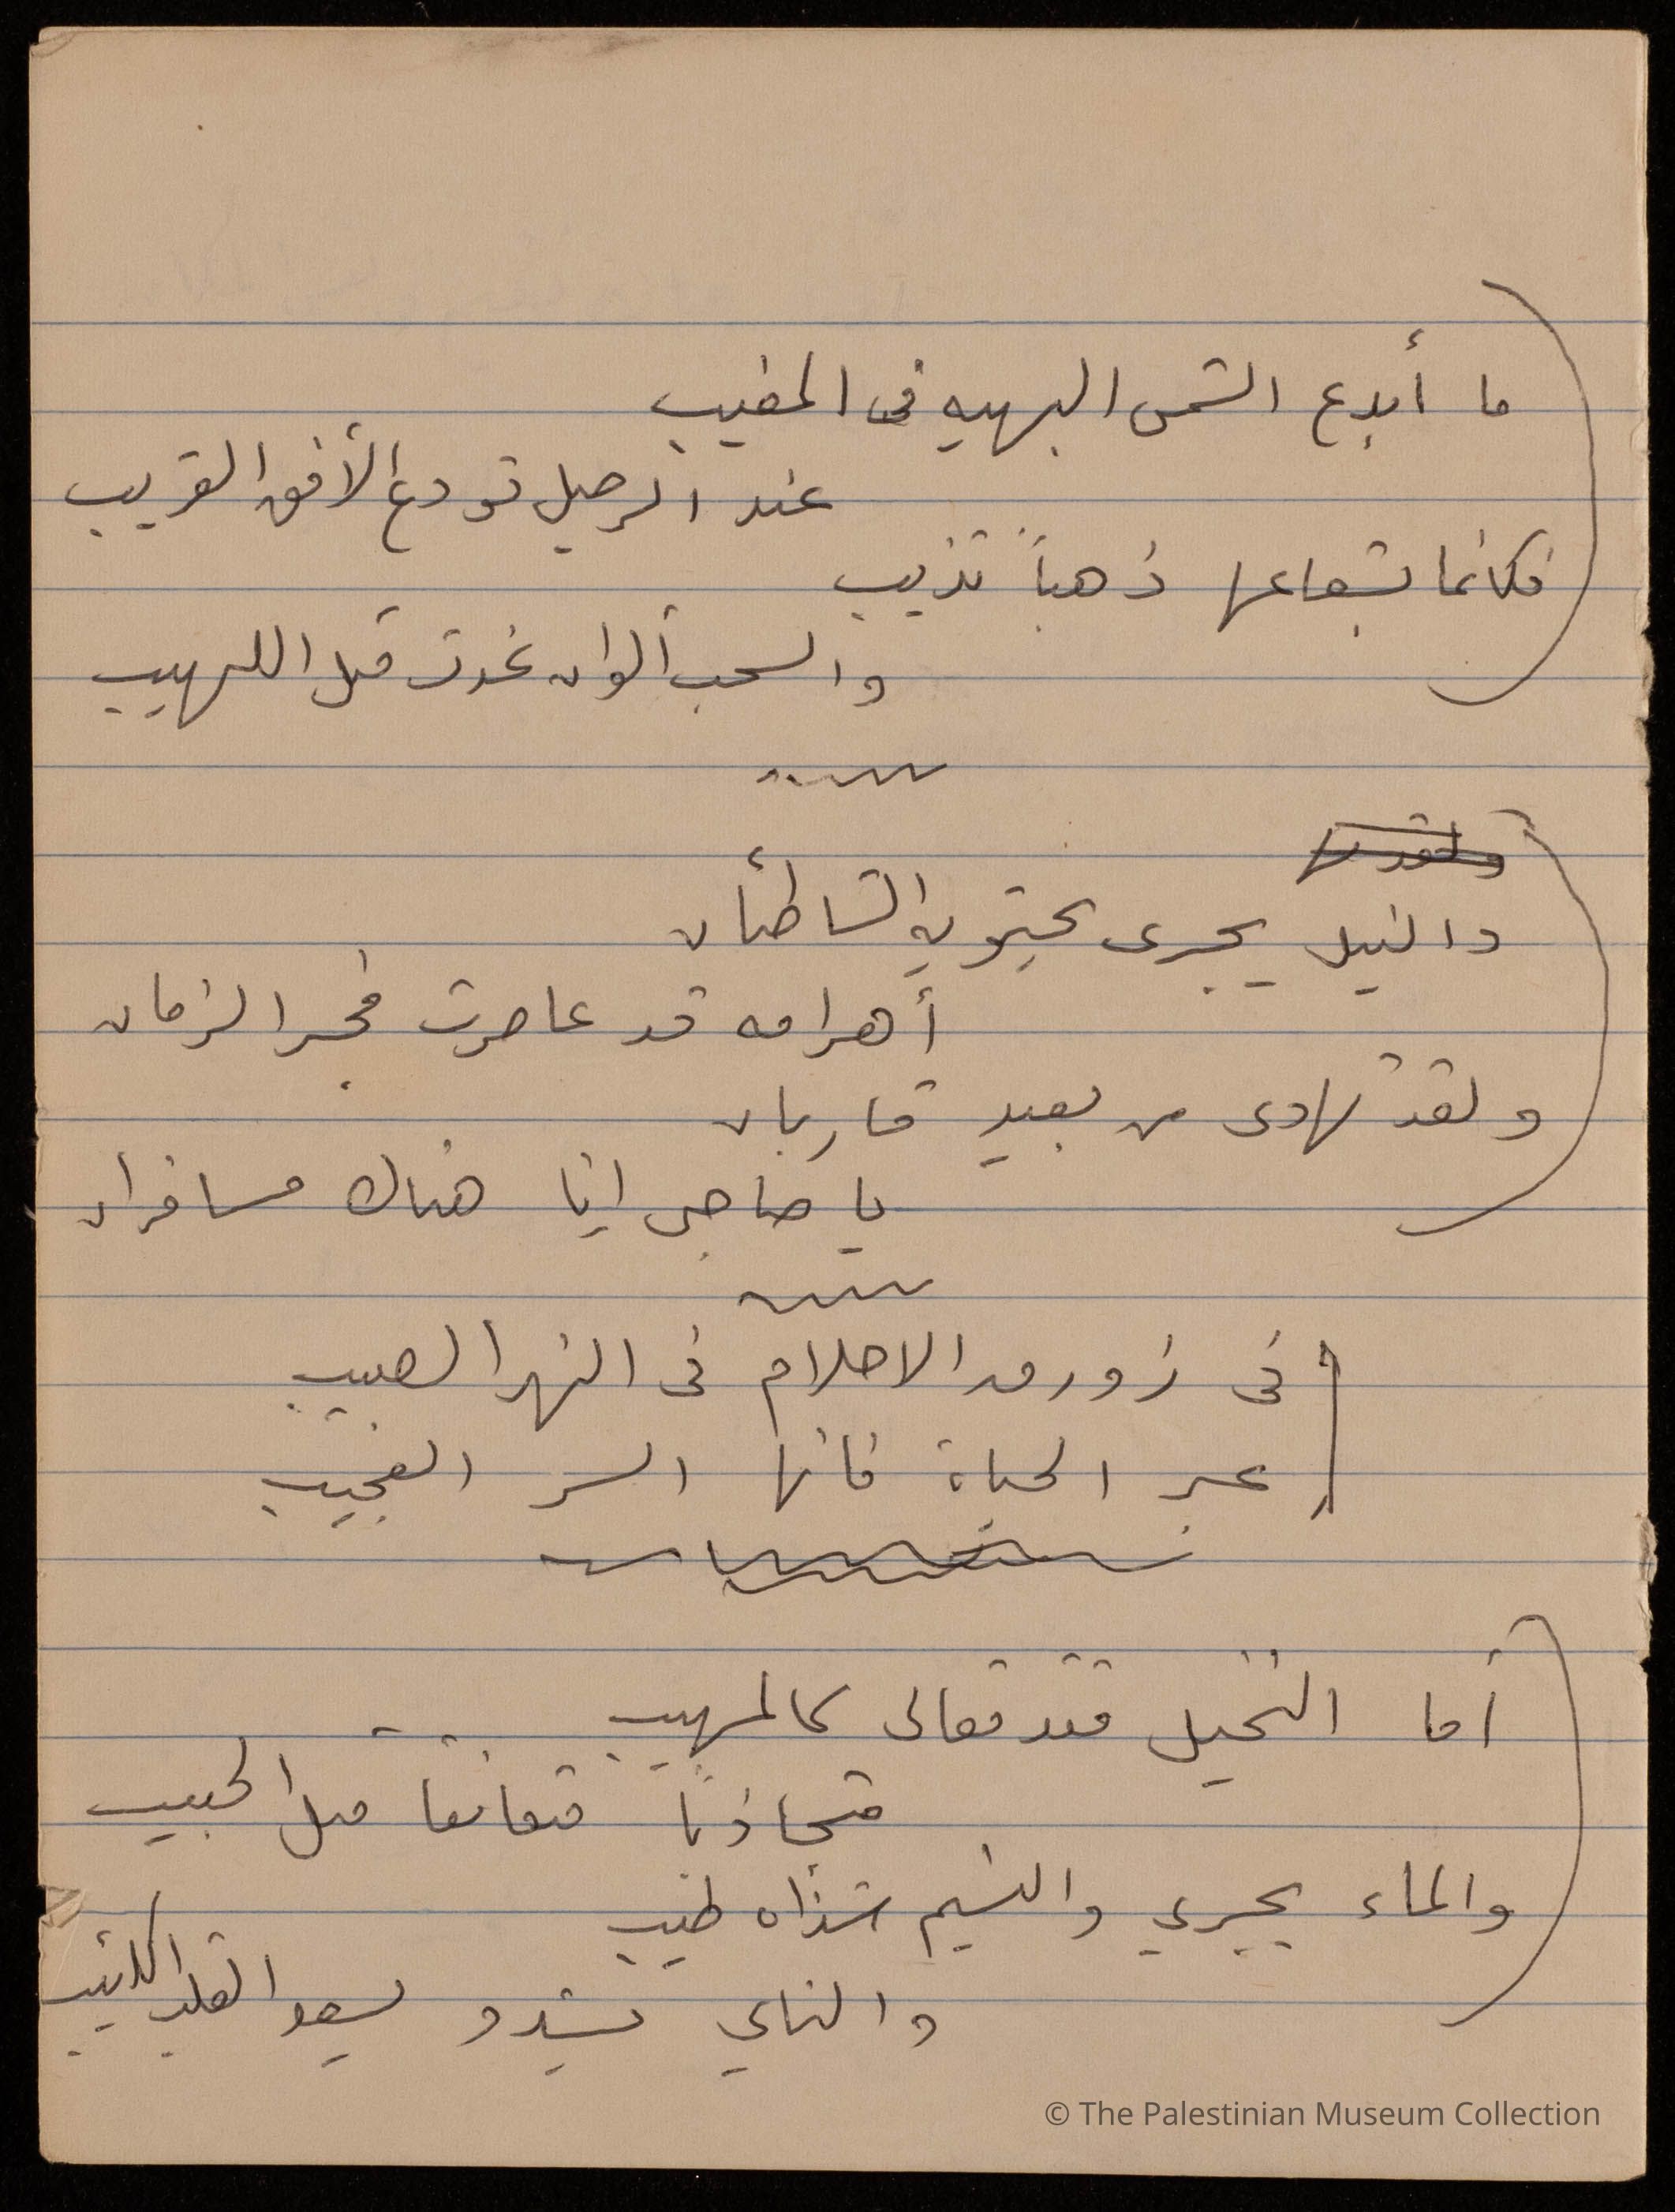 ما أبدع الشمس البهيه فى المغيب
عند الرحيل تودع الأفق القريب
فكانما بشعاعها ذهباً تذيب
والسحب ألوان غدت مثل اللهيب
والنيل يجرى يحتويه الشاطئان
أهرامه قد عاصرت فجر الزمان
ولقد تهادى من بعيد قاربان
يا صاحبى انا هناك مسافران
فى زورق الاحلام فى النهر
عبر الحياة فانها السر العجيب
أما النخيل فقد تعالى كالمهيب
متجاذبًا متعانقا مثل الحبيب
والماء يجري والنسيم شذاه طيب
والناي يشدو يسعد القلب الكئيب
© The Palestinian Museum Collection